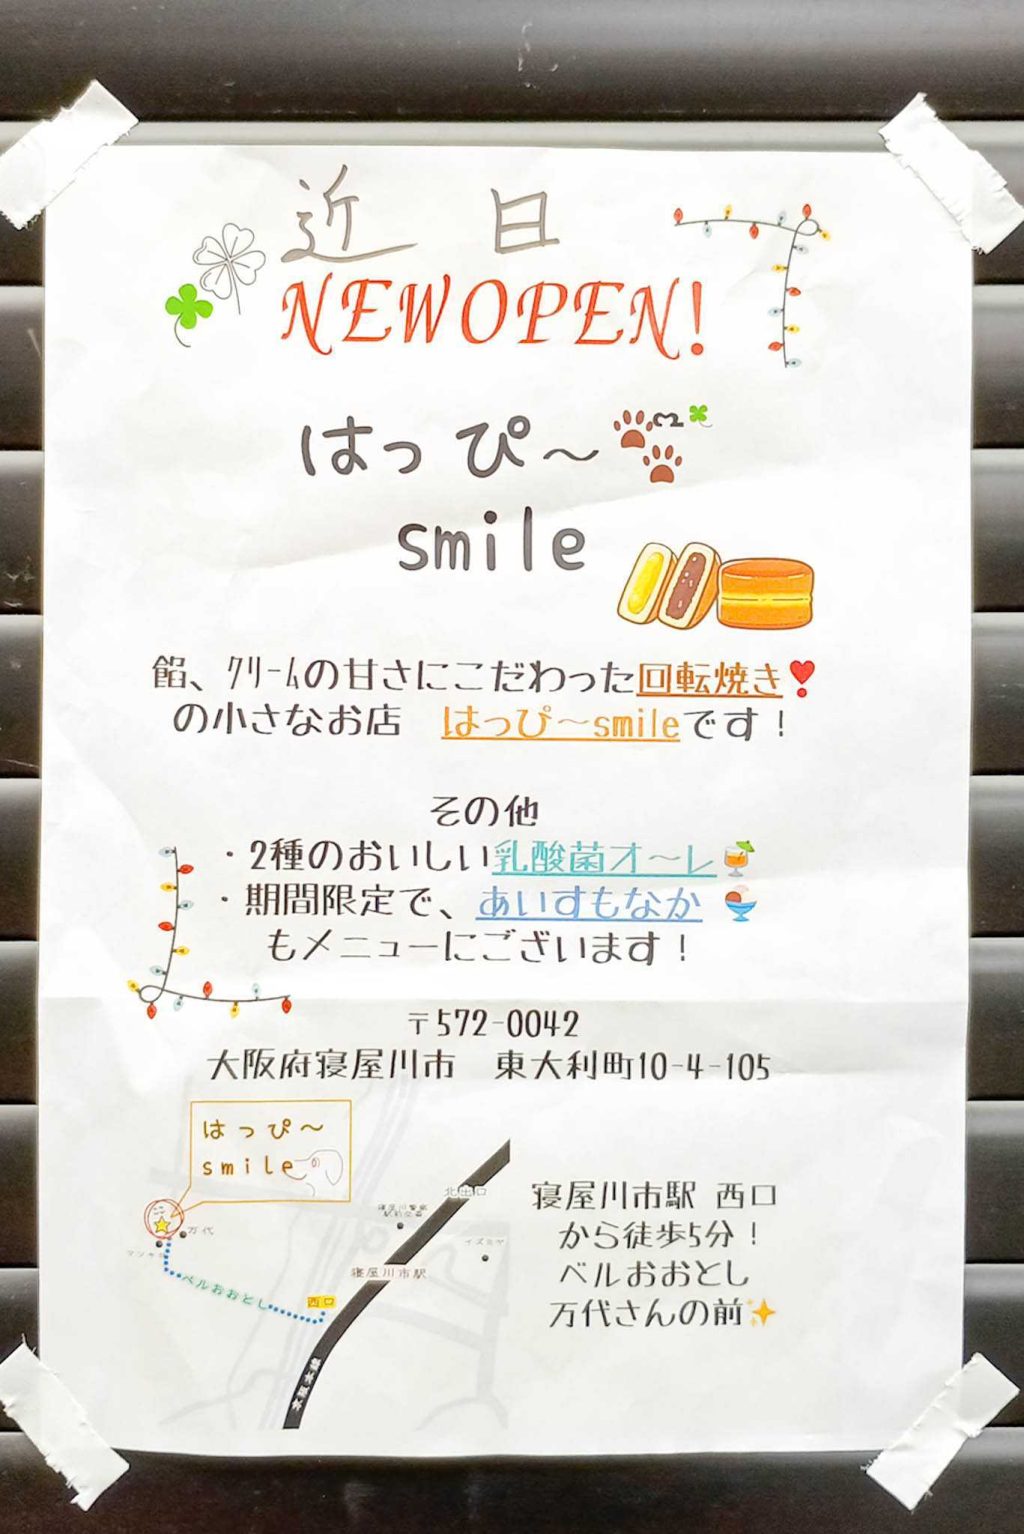 近日
NEWOPEN!
はっぴ〜
smile
餡、ｸﾘｰﾑの甘さにこだわった回転焼き
の小さなお店　はっぴ〜smileです！
その他
・2種のおいしい乳酸菌オ〜レ
・期間限定で、あいすもなか
もメニューにございます！
〒572-0042
大阪府寝屋川市　東大利町10-4-105
はっぴ〜
smile
万代
ベルおおとし
西口
寝屋川市駅
北出口
イズミヤ
京阪本線
寝屋川市駅 西口
から徒歩5分！
ベルおおとし
万代さんの前